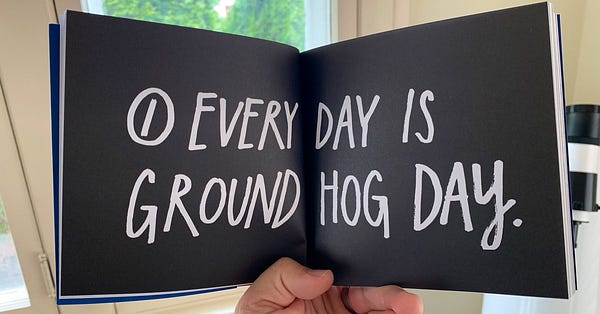 ① EVERY DAY IS
GROUND HOG DAY.